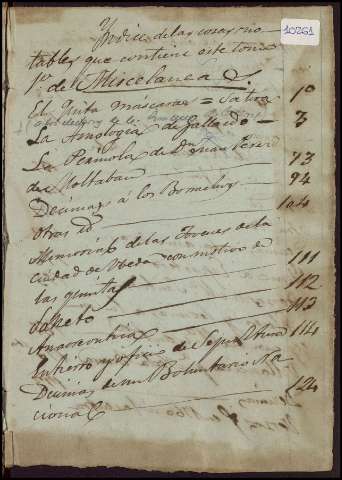 10261
Yndice de las cosas no
tables que contiene este tomo
1º de Miscelanea &.
El Quita mascaras = Satira 1º
La Apología de Gallardo — 3
La Perinola de Dn. Juan Perez
de Montalban 73
Decimas á los 94
Otras id 104
Memorias de las Jovenes de la
ciudad de Ubeda con motivo de
las quintas 111
Soneto 112
Anacreontica 113
Entierro y oficio de Sepultura 114
Decimas de un Boluntario Na
cional 124